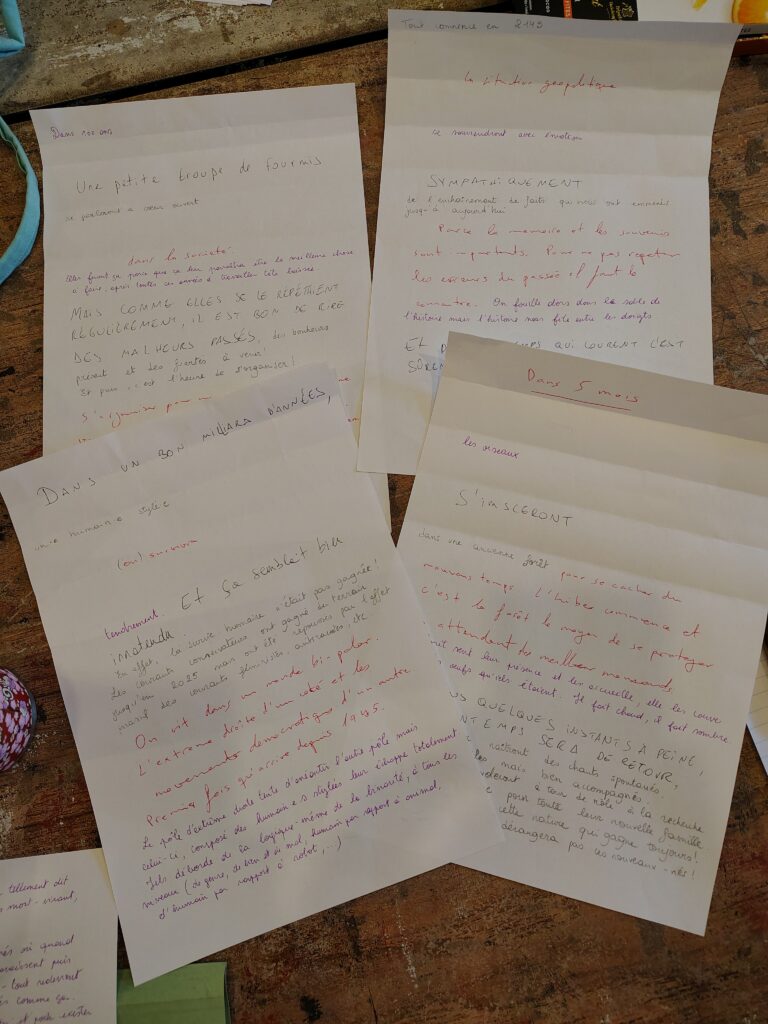 Dans 100 ans
Une petite troupe de fourmis
se parleront a cœur ouvert
dans la societé.
Elles feront ça parce que ce leur paraîtra être la meilleure chose
à faire, après toutes ces années à travailler tête baissée
MAIS COMME ELLES SE LE RÉPÉTAIENT
RÉGULIÈREMENT, IL EST BON DE RIRE
DES MALHEURS PASSÉS, des bonheurs
présent et des fientes à venir!
Et puis, c'est l'heure de s'organiser!
S'organiser pour
Tout commence en 2149
la situation geopolitique
se souviendront avec émotion
SYMPATHIQUEMENT
de l'enchaînement de faits qui nous ont emmenés
jusqu'à aujourd'hui
Parce la memoire et les souvenirs
sont importants. Pour ne pas repeter
les erreurs du passés il faut le
connaitre. On fouille donc dans le sable de
l'histoire mais l'histoire nous file entre les doigts
ET QUI COURENT C'EST
DANS UN BON MILLIARD D'ANNÉES,
un·e humain·e stylé·e
(on) survivra
tendrement. Et ça semblait bien
inattendu.
En effet, la survie humaine n'était pas gagnée!
Les courants conservateurs ont gagné du terrain
jusqu'en 2025 mais ont été repoussés par l'effet
massif des courants féministes, antiracistes, etc
On vit dans un monde bi-polar.
L'extreme droite d'un coté et les
movements democratique d'un autre.
Premis fois qu'arrive depuis 1945.
Le pôle d'extrême droite tente d'anéantir l'autre pôle mais
celui-ci, composé des humain·e·s stylé·es leur échappe totalement
Iels déborde de la logique-même de la binarité, à tous les
niveaux (de genre, de bien et de mal, humain par rapport à animal,
d'humain par rapport à robot, ...)
Dans 5 mois
les oiseaux
S'IMISCERONT
dans une ancienne forêt pour se cacher du
mauvais temps. L'hiber commence et
c'est la forêt le moyen de se proteger
attendent
sent leur présence et les accueille, elle les couve
œufs qu'ils étaient. Il fait chaud, il fait sombre.
QUELQUES INSTANTS À PEINE,
SERA DE RETOUR,
des chants spontanés.
mais bien accompagnés.
à tour de rôle à la recherche
pour toute leur nouvelle famille
cette nature qui gagne toujours!
dérangera pas ces nouveaux-nés!
tellement dit
mort-vivant,
quand
puis
tout
comme ça.
exister